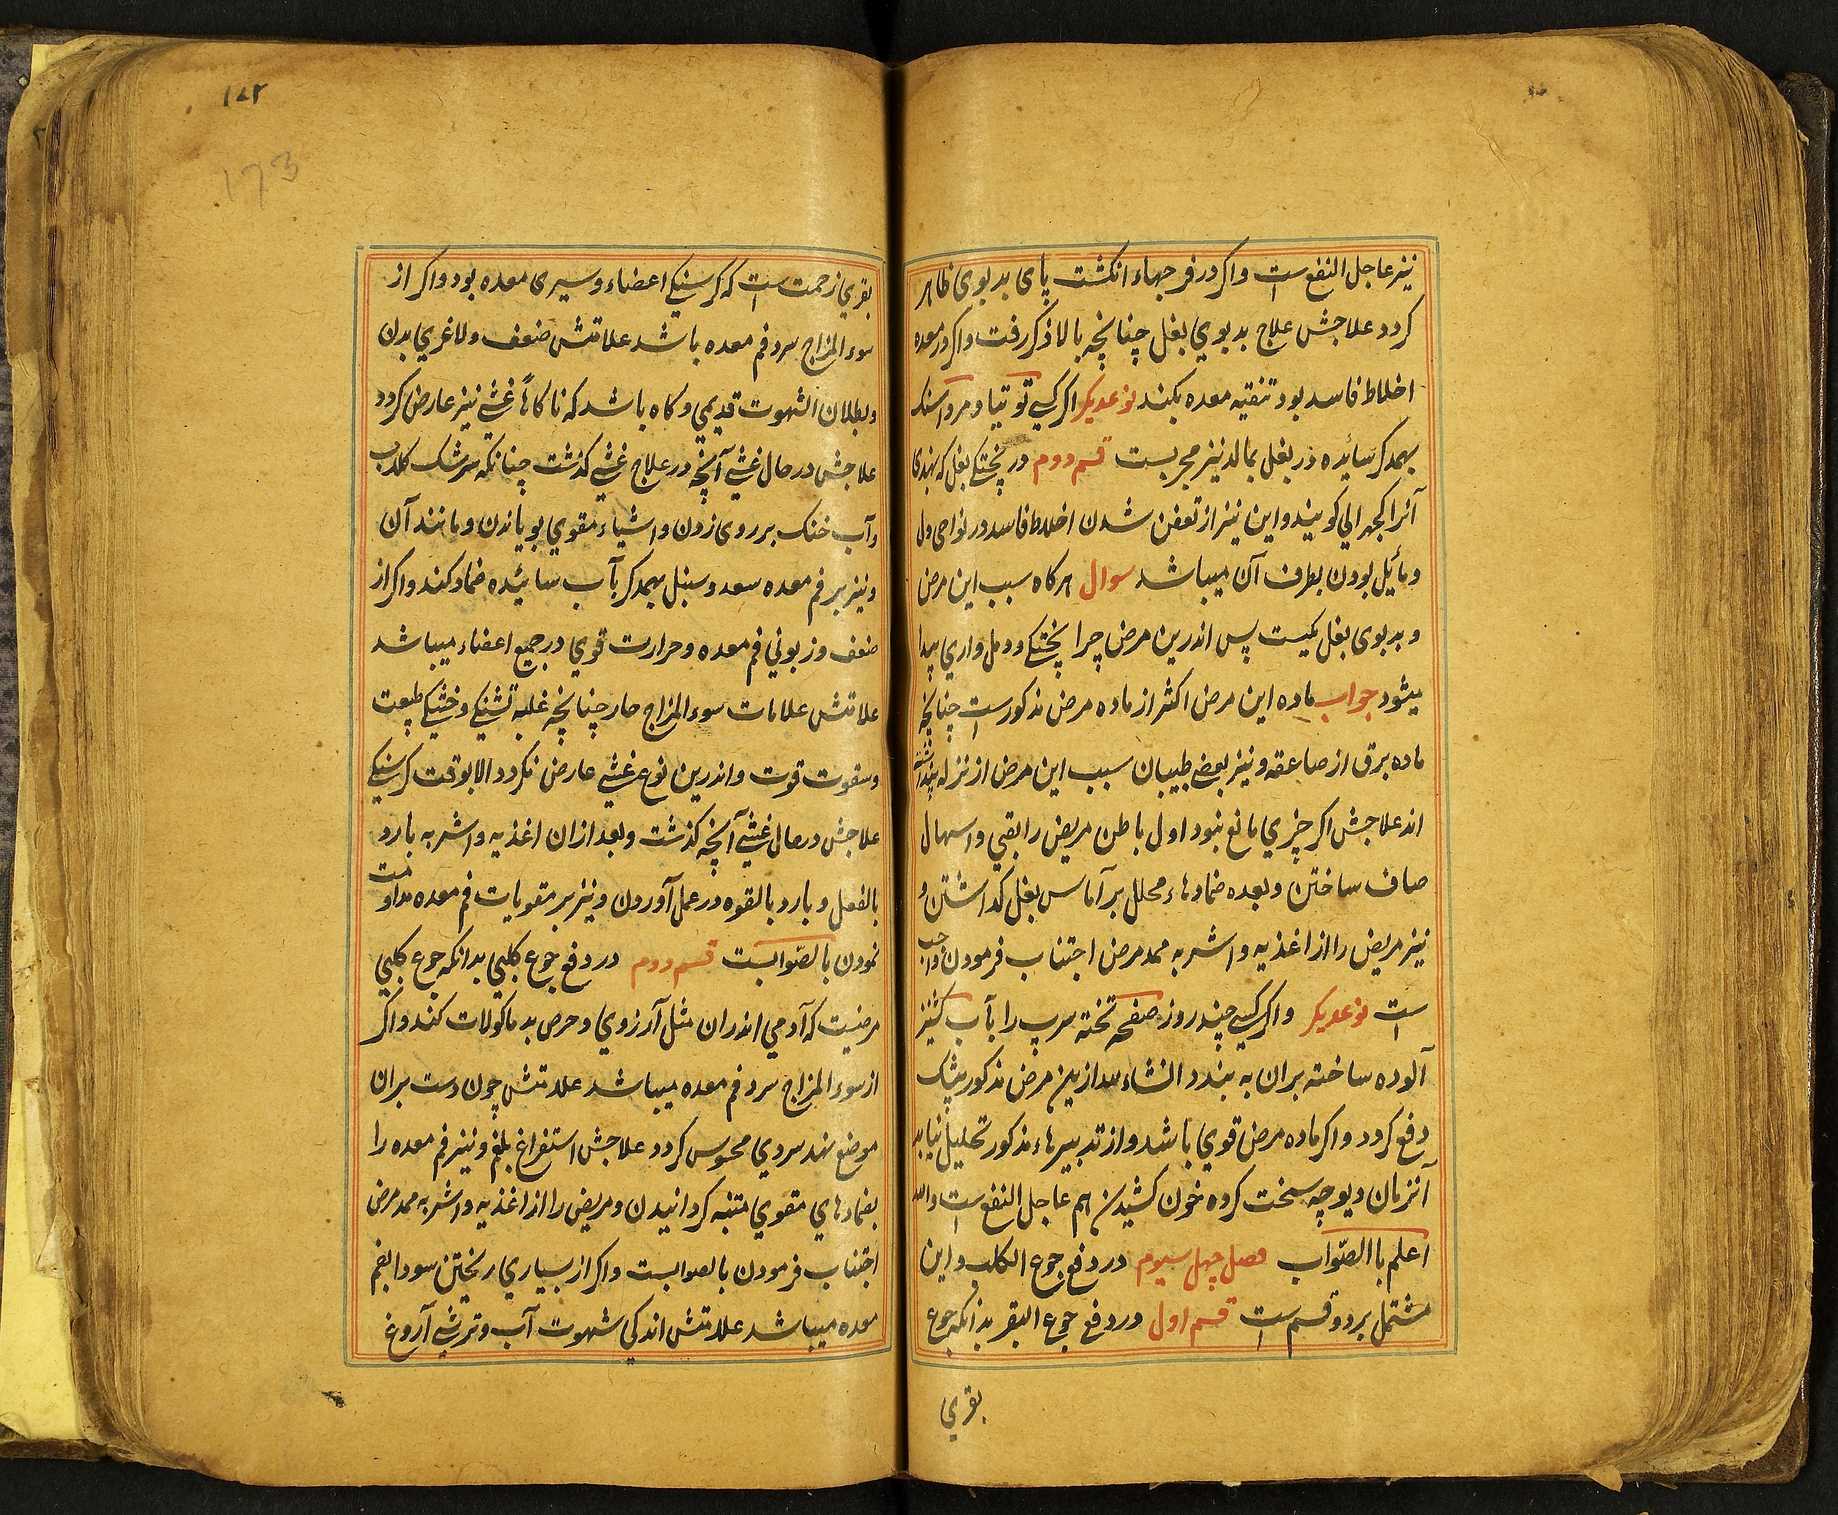 نیز عاجل النفع است و اکر در فرجهاء انکشت پای بدبوی ظاهر
کردد علاجش علاج بدبوی بغل چنانچه بالا ذکر رفت و اکر در معده
اخلاط فاسد بود تنقیه معده بکنند نوعدیکر اکر کسی توتیا و مرداسنک
بهمدکر سائیده در بغل بمالد نیز مجربست قسم دوم در پختکی بغل که بهندی
آنرا کجهرالی کویند و این نیز از تعفن شدن اخلاط فاسد در نواحی دل
و مائیل بودن بطرف آن میباشد سوال هرکاه سبب این مرض
و بدبوی بغل یکیست پس اندرین مرض چرا پختکی و دمل واری پیدا
میشود جواب ماده این مرض اکثر از ماده مرض مذکور است چنانچه
ماده برق از صاعقه و نیز بعضی طبیبان سبب این مرض از نزله پنداشته
اند علاجش اکر چیزی مانع نبود اول باطن مریض را بقی و اسهال
صاف ساختن و بعده ضمادهاء محلل بر آماس بغل کذاشتن و
نیز مریض را از اغذیه و اشربه ممد مرض اجتناب فرمودن واجب
است نوعدیکر و اکر کسی چند روز صفحه تخته سرپ را بآب کشنیز
آلوده ساخته بران به بندد انشاءالله ازین مرض مذکور بیشک
دفع کردد و اکر ماده مرض قوی باشد و از تدبیرهاء مذکور تحلیل نیابد
آنزمان دیوچه سخت کرده خون کشیدن هم عاجل النفع است والله
اعلم باالصّواب فصل چهل سیوم در دفع جوع الکلب و این
مشتمل بر دو قسم است قسم اول در دفع جوع البقر بدانکه جوع
بقری
۱۷۲
173
بقری زحمت است که کرسنکی اعضاء و سیری معده بود و اکر از
سوء المزاج سرد فم معده باشد علامتش ضعف و لاغری بدن
و بطلان الشهوت قدیمی و کاه باشد که ناکاهاً غشی نیز عارض کردد
علاجش در حال غشی آنچه در علاج غشی کذشت چنانکه سرشک کلاب
و آب خنک بر روی زدن و اشیاء مقوی بویاندن و مانند آن
و نیز بر فم معده سعد و سنبل بهمدکر بآب سائیده ضماد کنند و اکر از
ضعف و زبونی فم معده و حرارت قوی در جمیع اعضاء میباشد
علامتش علامات سوء المزاج حار چنانچه غلبه تشنکی و خشکی طبیعت
و سقوت قوت و اندرین نوع غشی عارض نکردد الا بوقت کرسنکی
علاجش در حال غشی آنچه کذشت و بعد ازان اغذیه و اشربه بارد
بالفعل و بارد بالقوه در عمل آوردن و نیز بر مقویات فم معده مداومت
نمودن باالصّوابست قسم دوم در دفع جوع کلبی بدانکه جوع کلبی
مرضیست که آدمی اندران مثل آرزوی و حرص بد ماکولات کند و اکر
از سوء المزاج سرد فم معده میباشد علامتش چون دست بران
موضع نهند سردی محسوس کردد علاجش استفراغ بلغم و نیز فم معده را
بضمادهای مقوی متنبه کردانیدن و مریض را از اغذیه و اشربه ممد مرض
اجتناب فرمودن بالصوابست و اکر از بسیاری ریختن سودا بفم
معده میباشد علامتش اندکی شهوت آب و ترشی آروغ